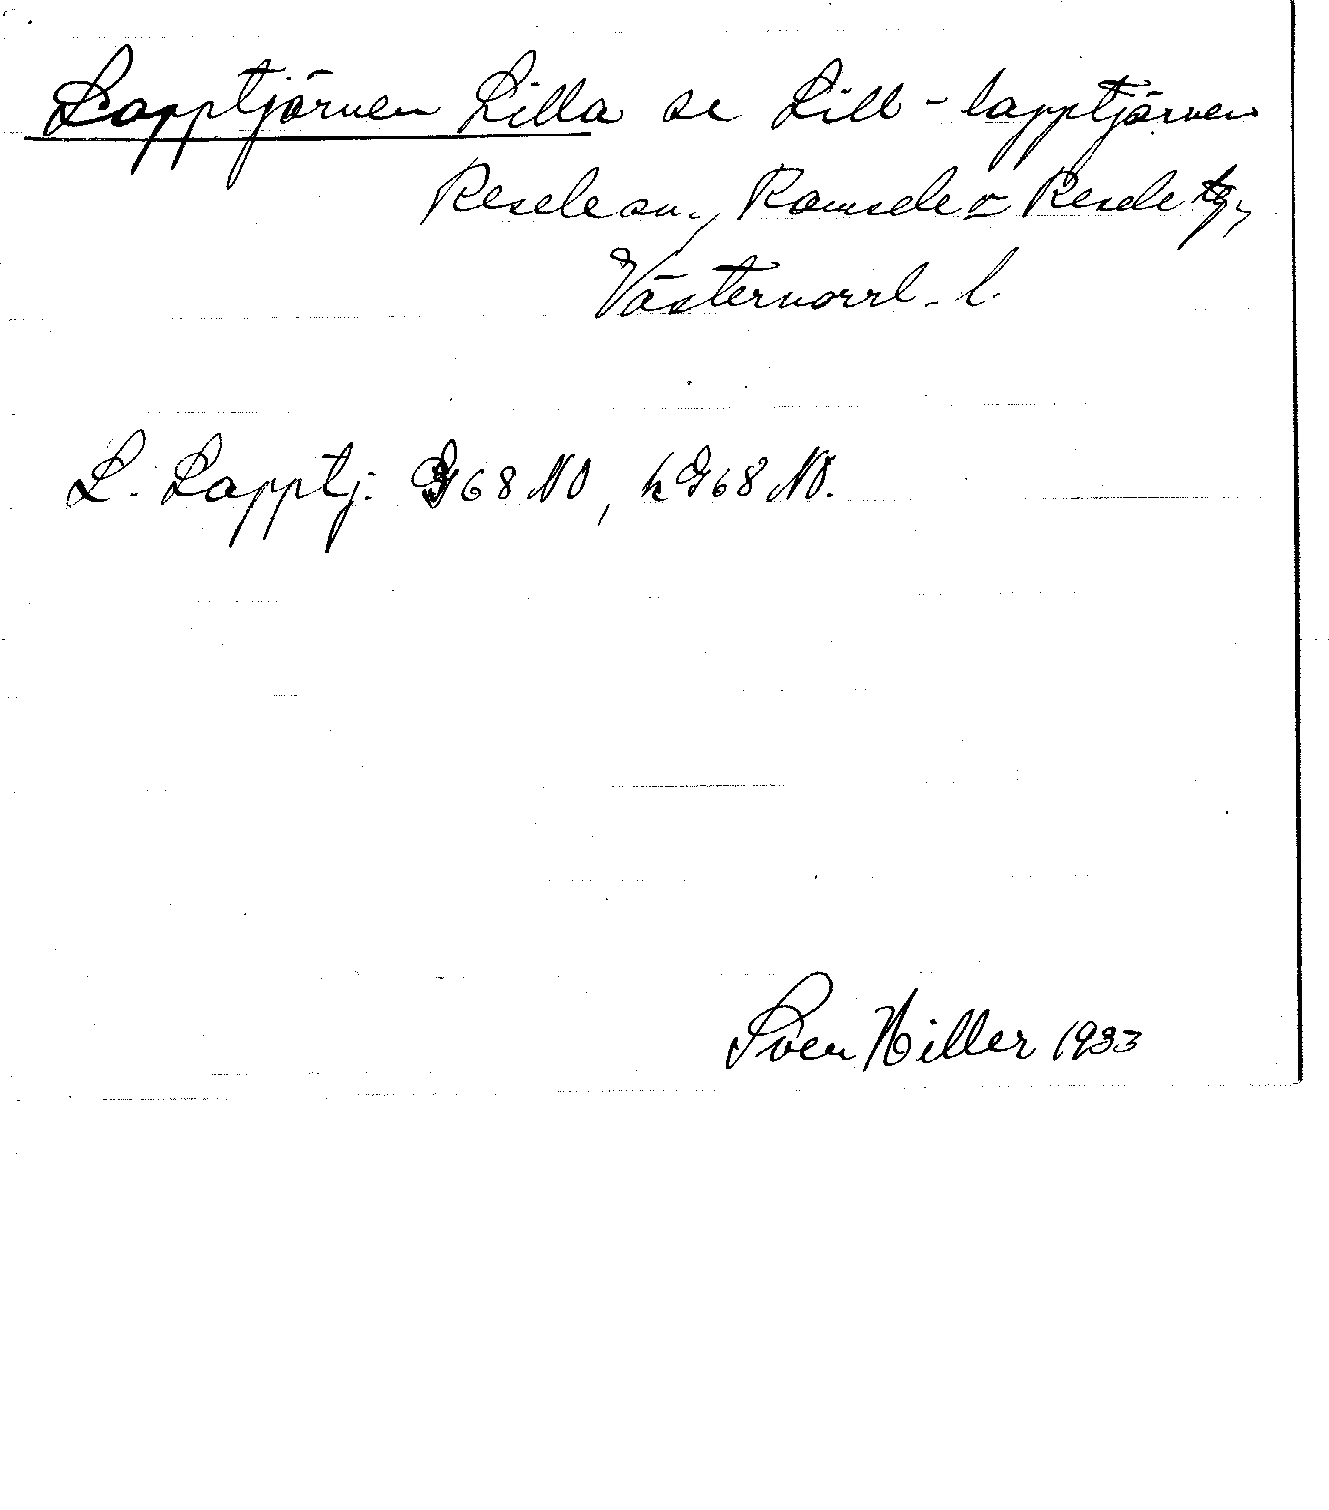 Lapptjärnen Lilla se Lill-lapptjärnen
Resele sn., Ramsele o Resele tg,
Västernorrl. l.
L. Lapptj. G68 NO, h G68 NO.
Sven Hiller 1933